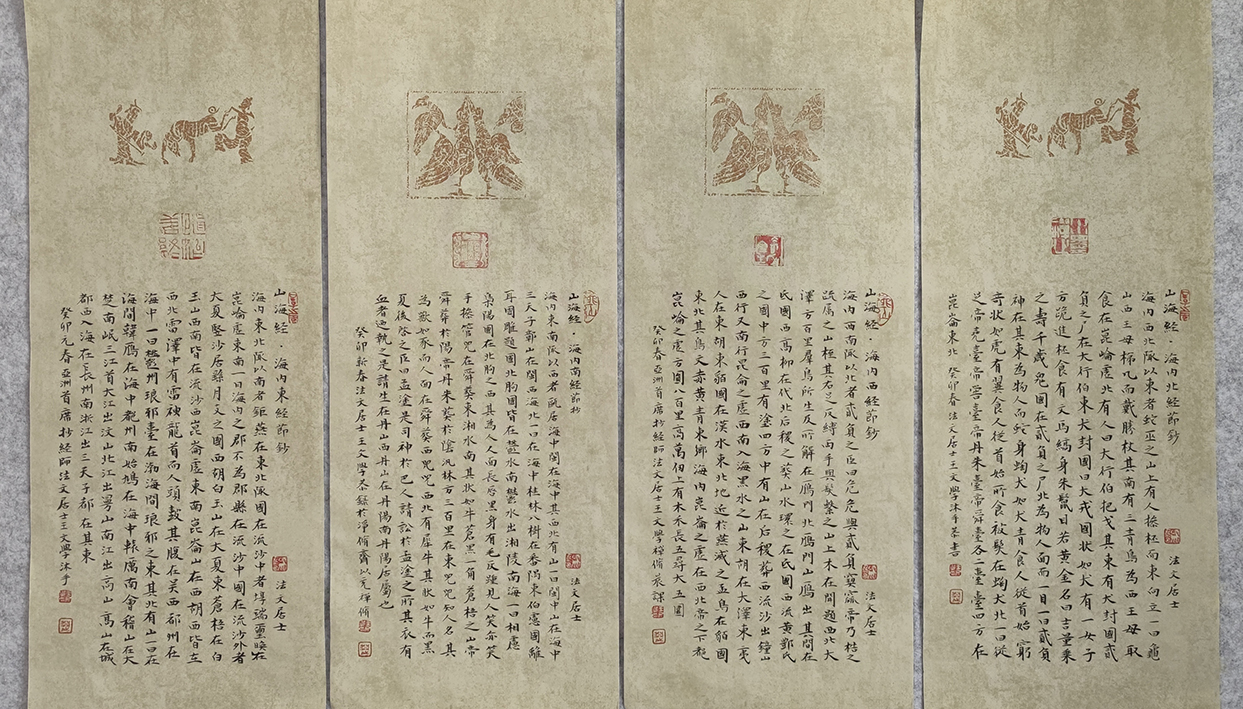 山海经·海内北经節鈔
法文居士
海内西北陬以東者蛇巫之山上有人操柸而東向立一曰龜
山西王母梯几而戴勝杖其南有三青鳥為西王母取
食在崑崙虛北有人曰大行伯把戈其東有犬封國貳
負之尸在大行伯東犬封國曰犬戎國狀如犬有一女子
方跪進柸食有文馬縞身朱鬣目若黄金名曰吉量乘
之壽千歲鬼國在貳負之尸北為物人面而一目一曰貳負
神在其東為物人面蛇身蜪犬如犬青食人從首始窮
奇狀如虎有翼食人從首始所食被髮在蜪犬北一曰從
足帝堯臺帝嚳臺帝丹朱臺帝舜臺各二臺臺四方在
崑崙東北 癸卯春 法文居士王文學沐手恭書
山海经·海内西经節鈔
法文居士
海内西南陬以北者貳負之臣曰危危與貳負殺窫窳帝乃梏之
疏属之山桎其右足反縛兩手與髮繫之山上木在開題西北大
澤方百里群鳥所生及所解在雁門北雁門山雁出其間在
氐國西高柳在代北后稷之葬山水環之在氐國西流黄酆氏
之國中方三百里有塗四方中有山在后稷葬西流沙出鐘山
西行又南行昆侖之虛西南入海黑水之山東胡在大澤東夷
人在東胡東貊國在漢水東北地近于燕滅之孟鳥在貊國
東北其鳥文赤黄青東鄉海内崑崙之虛在西北帝之下都
崑崙之虛方圓八百里高萬仞上有木禾長五尋大五圍
癸卯春亞洲首席抄經師法文居士王文學
山海經 海内南經節抄
法文居士
海内東南陬以西者甌居海中閩在海中其西北有山一曰閩中山在海中
三天子鄣山在閩西海北一曰在海中桂林八樹在番隅東伯慮國離
耳國雕題國北朐國皆在鬱水南鬱水出湘陵南海一曰相慮
梟陽國在北朐之西其為人人面長唇黑身有毛反踵見人笑亦笑
手操管兕在舜葬東湘水南其狀如牛蒼黑一角蒼梧之山帝
舜葬於陽帝丹朱葬於陰氾林方三百里在狌狌東狌狌知人名其
為獸如豕而人面在舜葬西狌狌西北有犀牛其狀如牛而黑
夏后啓之臣曰孟塗是司神於巴人請訟於孟塗之所其衣有
血者迺執之是請生在丹山西丹山在丹陽南丹陽居屬也
癸卯新春法文居士王文學恭錄於淨脩齋以充禪脩
山海经·海内東經節鈔
法文居士
海内東北陬以南者鉅燕在東北陬國在流沙中者埻端璽㬇在
崑崙虛東南一曰海内之郡不為郡縣在流沙中國在流沙外者
大夏竪沙居繇月支之國西胡白玉山在大夏東蒼梧在白
玉山西南皆在流沙西崑崙虛東南崑崙山在西胡西皆在
西北雷澤中有雷神龍首而人頭鼓其腹在吴西都州在
海中一曰鬱州琅邪臺在渤海間琅邪之東其北有山一曰在
海間韓雁在海中都州南始鳩在海中轅厲南會稽山在大
楚南岷三江首大江出汶山北江出曼山南江出高山高山在城
都西入海在長州南浙江出三天子都在其東
癸卯元春亞洲首席抄經師法文居士王文學沐手